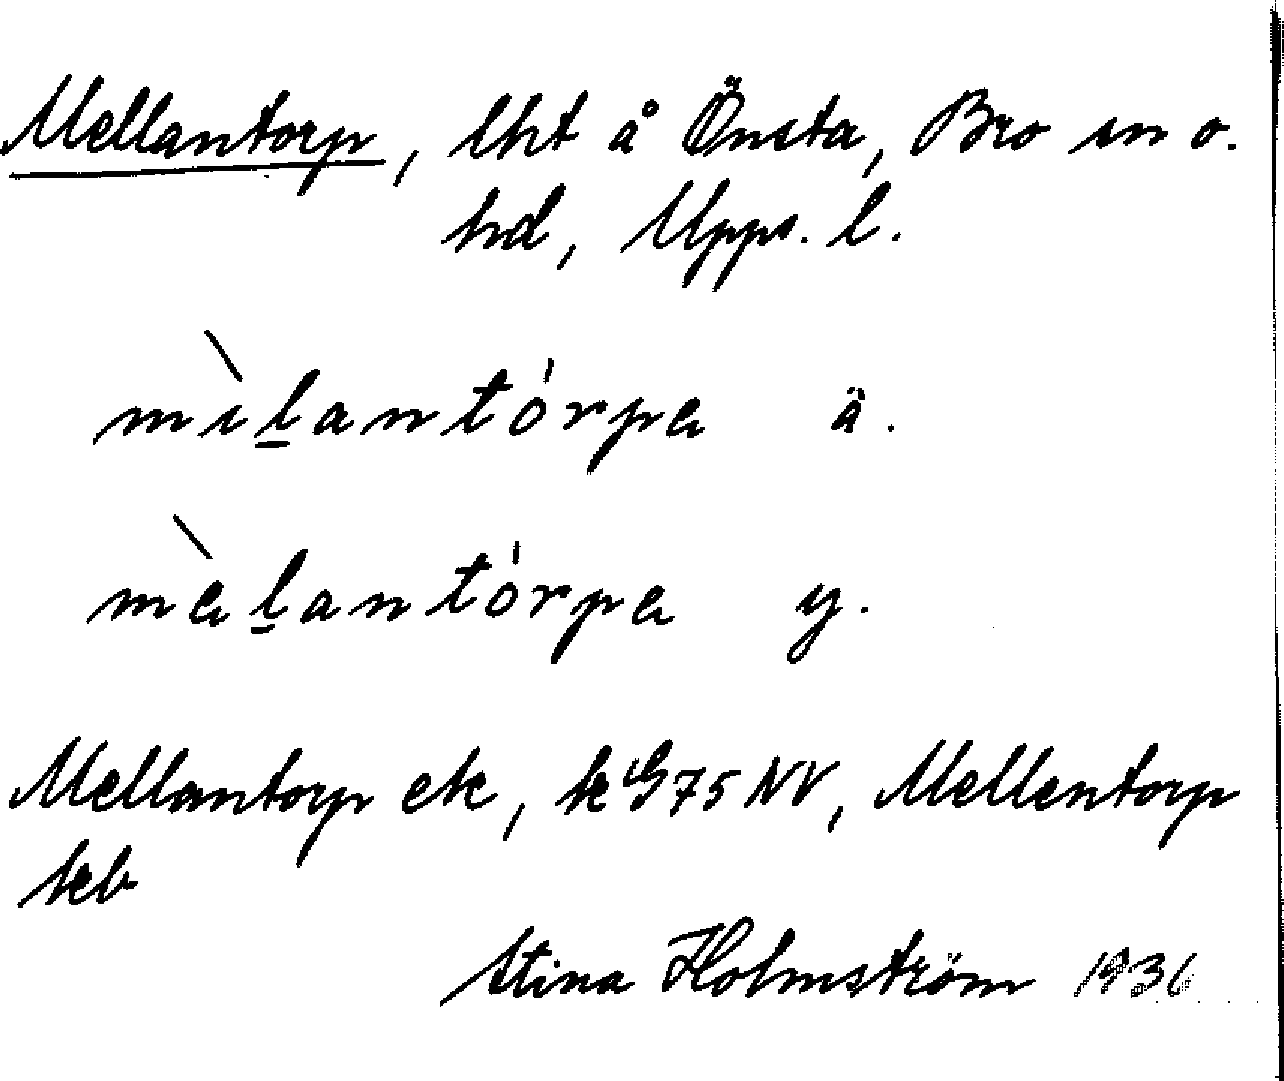 Mellantorp, lht å Önsta, Bro sn o.
hd, Upps. l.
mìlantórpa ä.
mèlantórpa y.
Mellantorp ek, k G 75 NV, Mellentorp
kb
Stina Holmström 1936